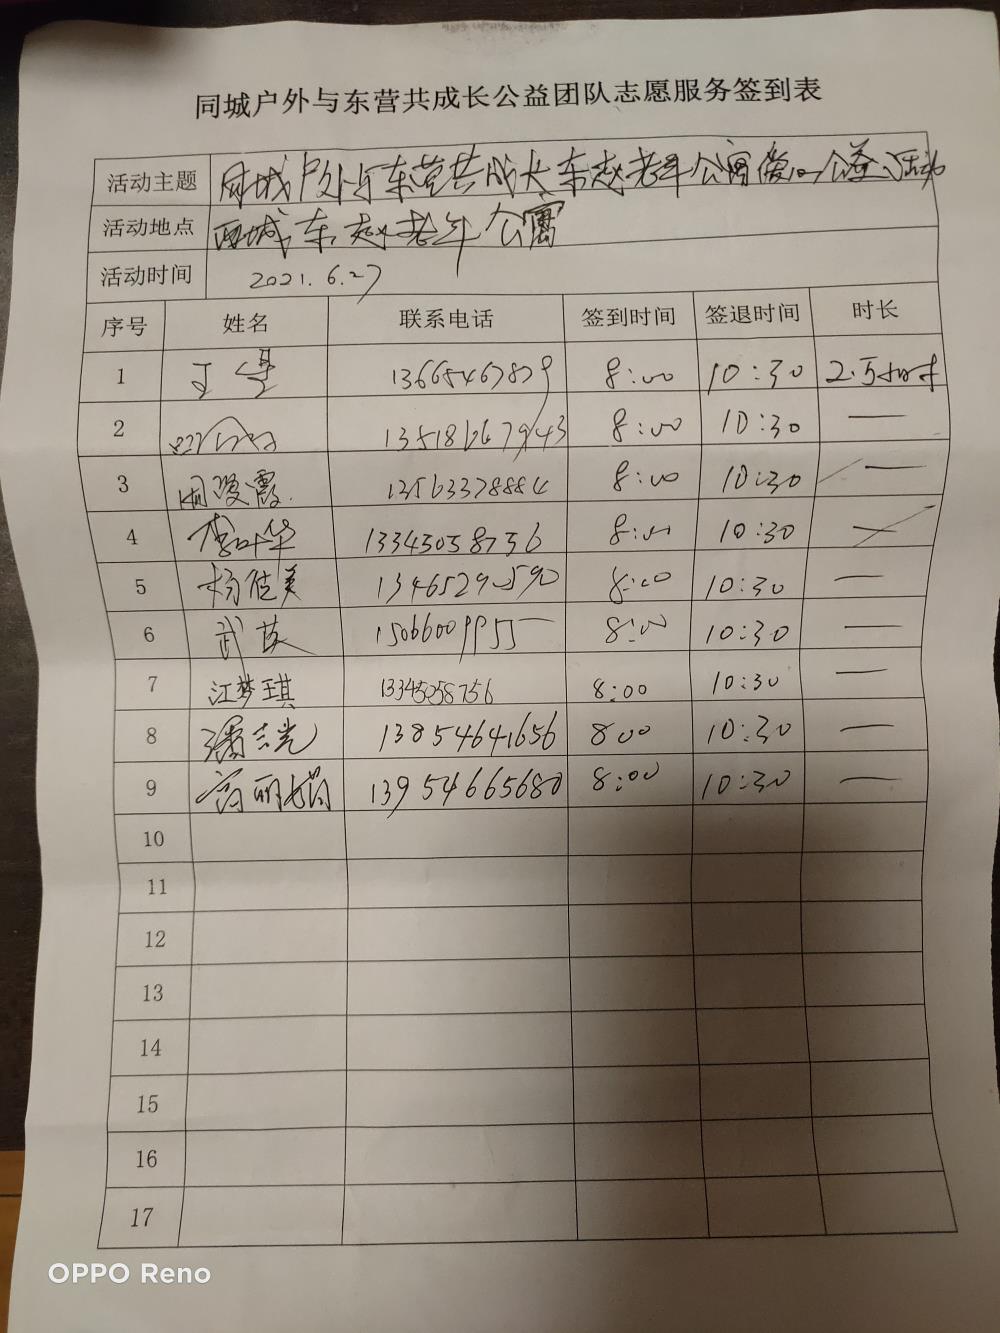 同城户外与东营共成长公益团队志愿服务签到表
活动主题 同城户外与东营共成长东赵老年公寓爱心公益活动
活动地点 西城东赵老年公寓
活动时间 2021.6.27
序号 姓名 联系电话 签到时间 签退时间 时长
1 王 8:00 10:30 2.5小时
2 8:00 10:30 —
3 周 霞 13563378884 8:00 10:30 —
4 李叶华 13345058756 8:00 10:30 —
5 杨佳美 13465290590 8:00 10:30 —
6 武 15066009955 8:00 10:30 —
7 江梦琪 13345058756 8:00 10:30 —
8 潘志光 13854641656 8:00 10:30 —
9 高明娟 13954665680 8:00 10:30 —
10
11
12
13
14
15
16
17
OPPO Reno